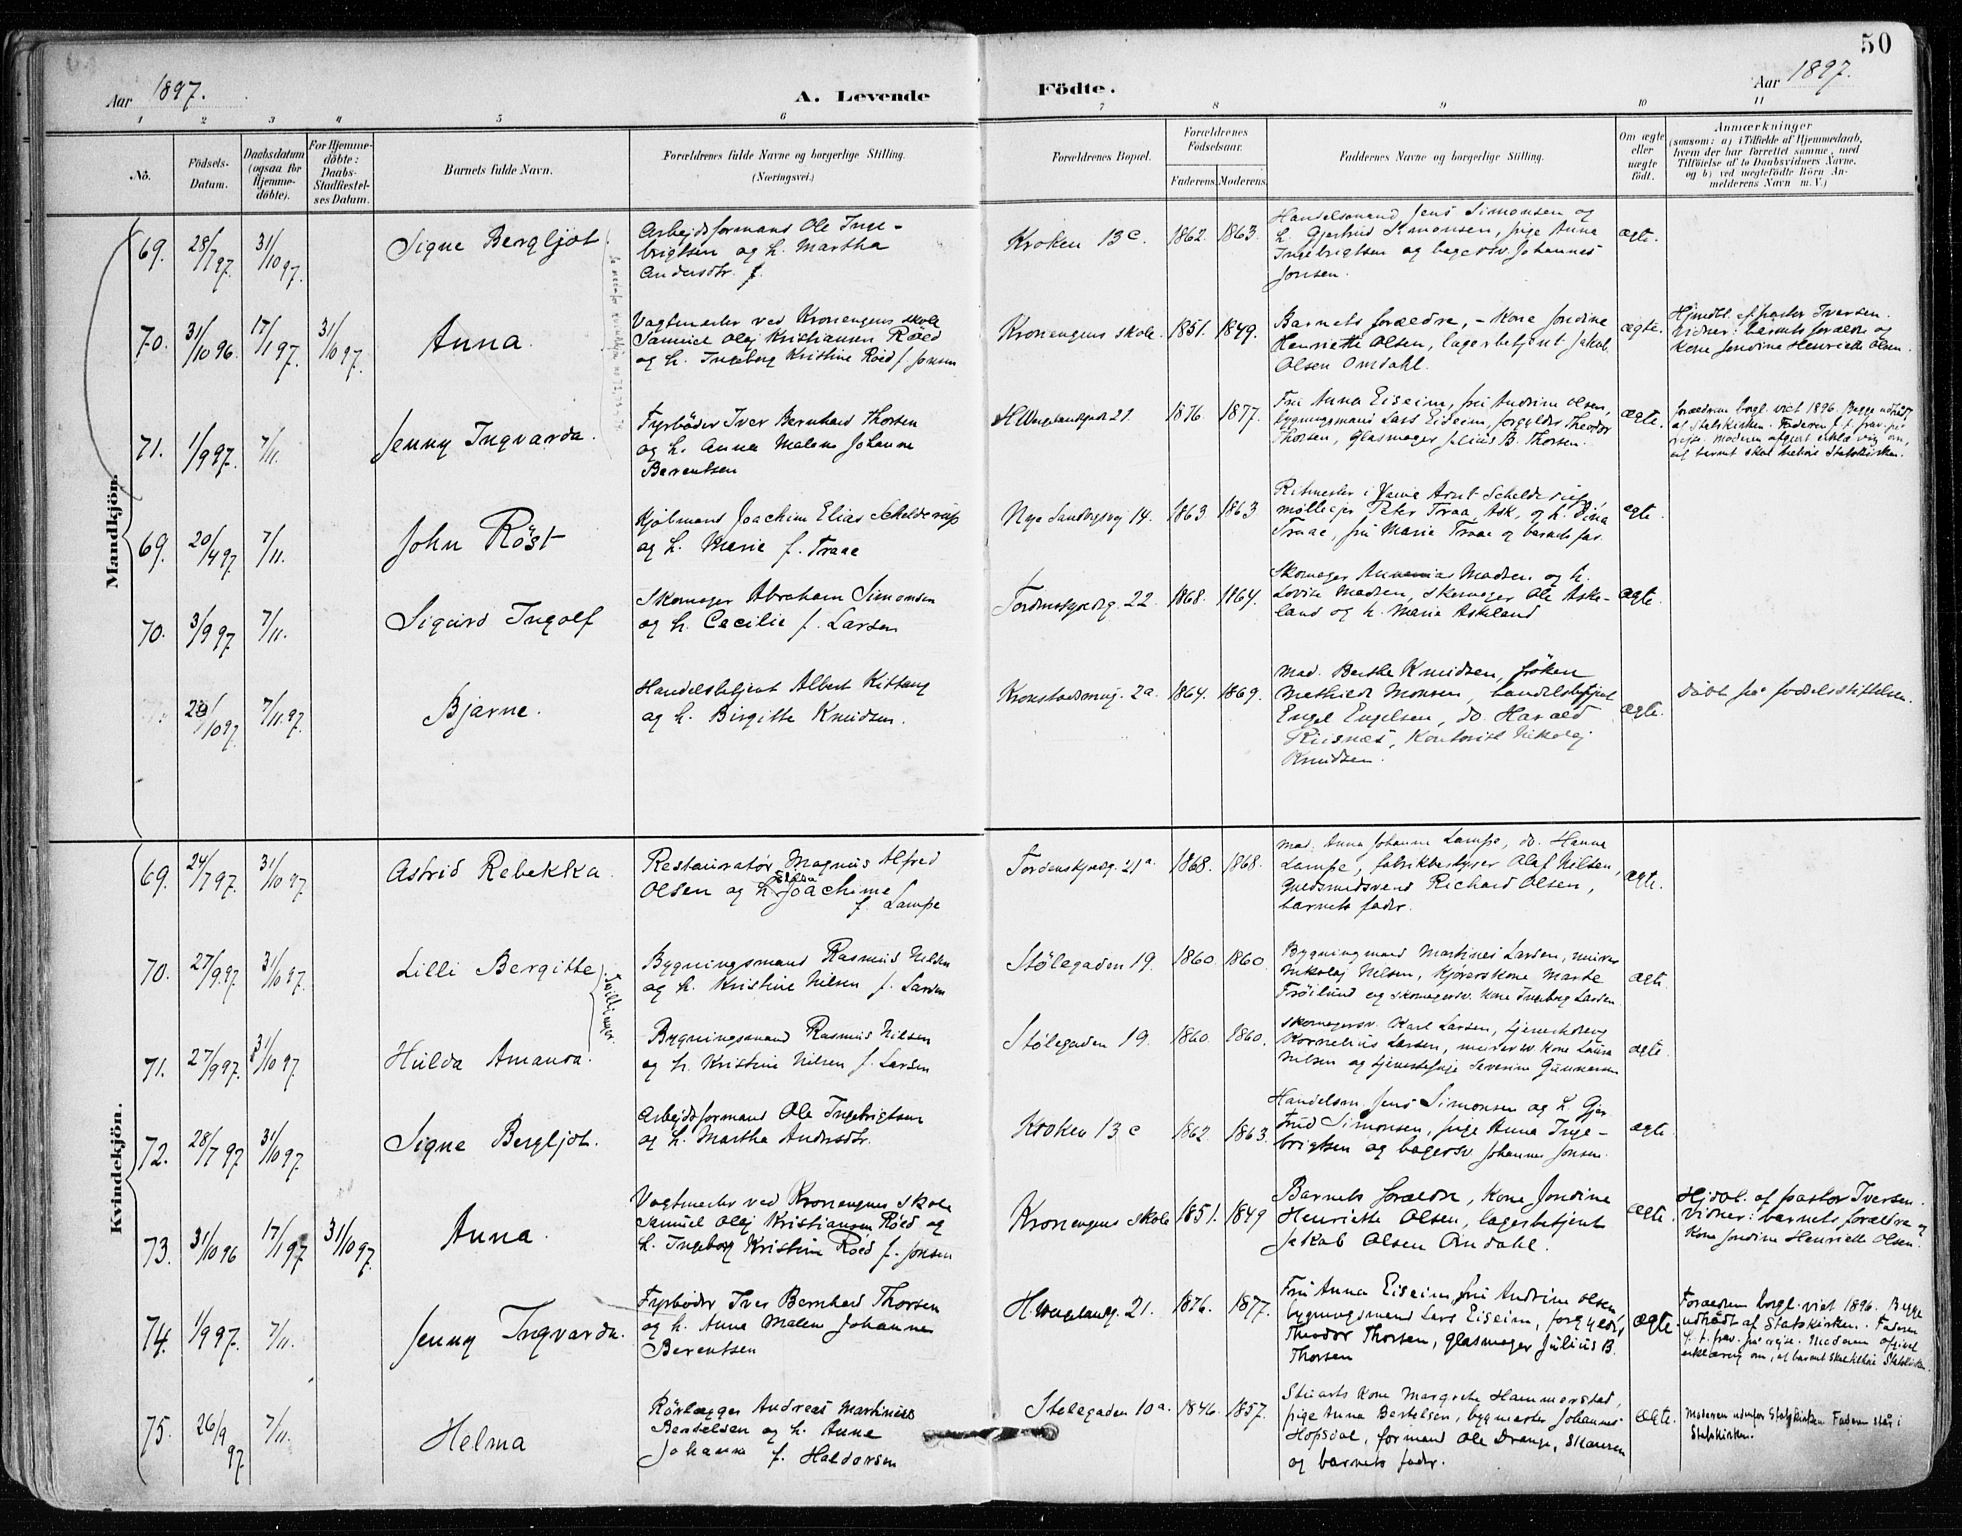 50
Aar 1897.
A. Levende
Födte.
Aar 1897.
1 2 3 4 5 6 7 8 9 10 11
No.
Födsels-
Datum.
Daabsdatum
(ogsaa for
Hjemme-
döbte).
For Hjemme-
döbte:
Daabs-
Stadfæstel-
ses Datum.
Barnets fulde Navn.
Forældrenes fulde Navne og borgerlige Stilling.
(Næringsvei.)
Forældrenes Bopæl.
Forældrenes
Födselsaar.
Faderens. Moderens.
Faddernes Navne og borgerlige Stilling.
Om ægte
eller
uægte
födt.
Anmærkninger
(saasom: a) i Tilfælde af Hjemmedaab,
hvem der har forrettet samme, med
Tilföielse af to Daabsvidners Navne,
og b) ved uægtefödte Börn An-
melderens Navn m. V.)
Mandkjön.
69. 28/7 97. 31/10 97. Signe Bergljot.
Arbejdsformand Ole Inge-
brigtsen og h. Martha
Andersdtr. f.
Kroken 13c. 1862. 1863.
Handelsmand Jens Simonsen og
h. Gjertrud Simonsen, pige Anna
Ingebrigtsen og bagersv. Johannes
Jonsen.
ægte.
70. 31/10 96. 17/1 97. 31/10 97. Anna.
Vagtmester ved Kronengens skole
Samuel Olaj Kristiansen Röed
og h. Ingeborg Kristine Röed f. Jonsen
Kronengens skole. 1851. 1849.
Barnets forældre, - Kone Jondine
Henriette Olsen, lagerbetjent Jakob
Olsen Omdahl.
ægte.
Hjmdbt. af pastor Iversen.
Vidner: barnets forældre og
Kone Jondine Henriette Olsen.
71. 1/9 97. 7/11. Jenny Ingvarda.
Fyrböder Iver Bernhard Thorsen
og h. Anna Malene Johanne
Berentsen
H. Wergelandsgade 21. 1876. 1877.
Fru Anna Eiseim, fru Andrine Olsen,
bygningsmand Lars Eiseim, forgylder Theodor
Thorsen, Glasmager Julius B. Thorsen.
ægte.
forældrene borgl. viet 1896. Begge udtrådt
af Statskirken. Faderen f. t. frav. på
rejse. Moderen afgivet erklæring om,
at barnet skal tilhøre Statskirken.
69. 20/4 97. 7/11. John Röst
Kjöbmand Joachim Elias Schelderup
og h. Marie f. Traae
Nye Sandviksvej 14. 1863 1863
Ritmester i Arnt Schelderup
mølleejer Peter Traa, Ask, og h. Dina
Traae, fru Marie Traae og barnets far.
ægte.
70. 3/9 97. 7/11. Sigurd Ingolf
Skomager Abraham Simonsen
og h. Cecilie f. Larsen
Tordenskjoldsg. 22. 1868. 1864.
Skomager Ananias Madsen og h.
Lovise Madsen, skomager Ole Aske-
land og h. Marie Askeland
ægte.
/10 97. 7/11 97. Bjarne.
Handelsbetjent Albert Kittang
og h. Birgitte Knudsen.
Kronstadsmug. 2a. 1864. 1869.
mad. Berthe Knudsen, fröken
Mathilde Monsen, handelsbetjent
Engel Engelsen, do. Harald
Risnæs, Kontorist Nikolaj
Knudsen.
ægte.
Döbt på födselsstiftelsen.
Kvindekjön.
69. 24/7 97. 31/10 97 Astrid Rebekka.
Restauratör Magnus Alfred
Olsen og h. Elfsa Joachime
f. Lampe
Tordenskjoldsg. 21a. 1868. 1868.
mad. Anna Johanne Lampe, do. Hanne
Lampe, fabrikbestyrer Olaf Nilsen,
guldsmedsvend Richard Olsen,
barnets fader.
ægte.
70. 27/9 97. 31/10 97. Lilli Bergitte
Tvillinger.
Bygningsmand Rasmus Nilsen
og h. Kristine Nilsen f. Larsen
Stölegaden 19. 1860. 1860.
Bygningmand Martines Larsen, murer
Nikolaj Nilsen, Kjörerskone Marte
Fröilund og skomagersv. Kone Ingeborg Larsen
ægte.
71. 27/9 97. 31/10 97. Hulda Amanda.
Bygningsmand Rasmus Nilsen
og h. Kristine Nilsen f. Larsen
Stölegaden 19. 1860. 1860.
Skomagersv. Karl Larsen, tjenestedreng
Kornelius Larsen, murersv. Kone Laura
Nilsen og tjenestepige Severine Gunnarsen
ægte.
72. 28/7 97. 31/10 97. Signe Bergljot.
Arbejdsformand Ole Ingebrigtsen
og h. Martha Andersdtr.
Kroken 13c 1862. 1863.
Handelsm. Jens Simonsen og h. Gjer-
trud Simonsen, pige Anna Inge-
brigtsen og bagersv. Johannes Jonsen.
ægte.
73. 31/10 96 17/1 97. 31/10 97. Anna.
Vagtmester ved Kronengens Skole
Samuel Olaj Kristiansen Röed og
h. Ingeborg Kristine Röed f. Jonsen
Kronengens skole 1851. 1849
Barnets forældre, Kone Jondine
Henriette Olsen, lagerbetjent
Jakob Olsen Omdahl.
ægte.
Hjdöbt. af pastor Iversen.
Vidner: barnets forældre og
Kone Jondine Henriette Olsen.
74. 1/9 97. 7/11. Jenny Ingvarda.
Fyrböder Iver Bernhard Thorsen
og h. Anna Malene Johanne
Berentsen
H. Wergelandsg. 21. 1876. 1877.
Fru Anna Eiseim, fru Andrine Olsen,
bygningsmand Lars Eiseim, forgylder
Theodor Thorsen, glasmager Julius B.
Thorsen
ægte.
Forældrene borgl. viet 1896. Begge
udtrådt af Statskirken. Faderen
f. t. frav. på rejse. Moderen afgivet
erklæring om, at barnet skal tilhøre Statskirken.
75. 26/9 97 7/11. Helma
Rörlægger Andreas Martinius
Bertelsen og h. Anne
Johanne f. Haldorsen
Stölegaden 10a. 1846. 1857.
Stuarts Kone Margrete Hammerstad,
pige Anna Bertelsen, bygmester Johannes
Hopsdal, formand Ole Drange, Skansen
og barnets fader.
ægte.
Moderen udenfor Statskirken Faderen står i
Statskirken.